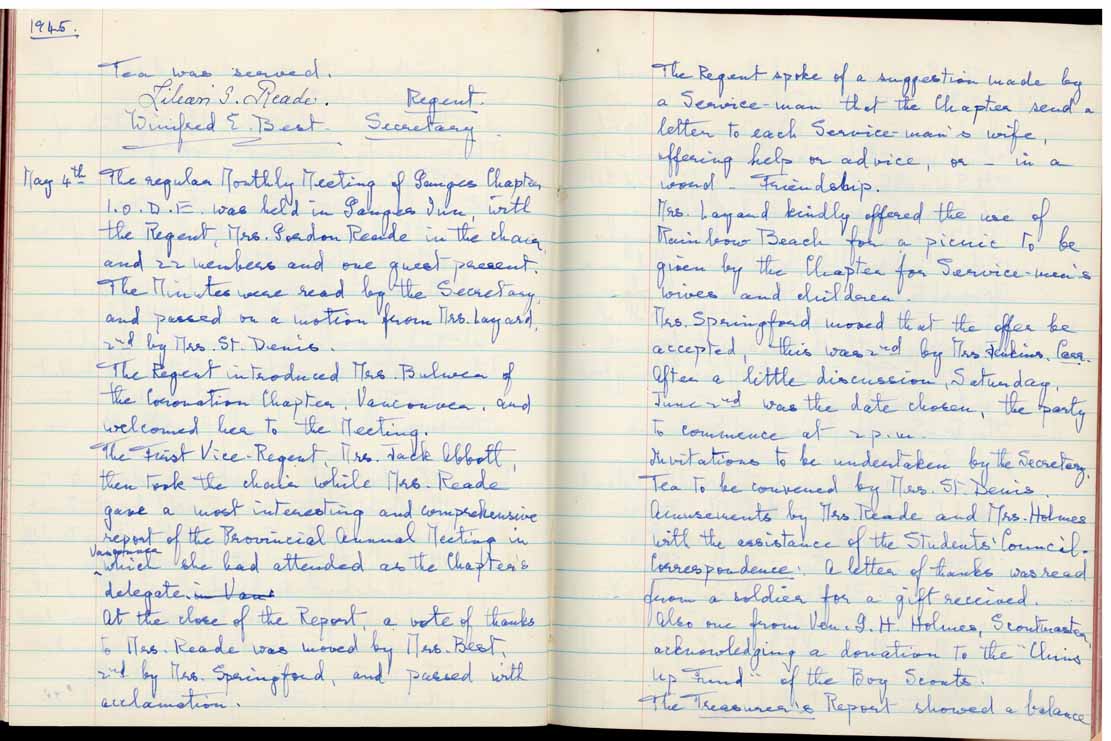 1945.
Tea was served.
Lilian S. Reade. Regent.
Winifred E. Best. Secretary.
May 4th The regular Monthly Meeting of Ganges Chapter
I.O.D.E. was held in Ganges Inn, with
the Regent, Mrs. Gordon Reade in the chair
and 22 members and one guest present.
The Minutes were read by the Secretary,
and passed on a motion from Mrs. Layard,
2nd by Mrs. St. Denis.
The Regent introduced Mrs. Bulwer of
the Coronation Chapter, Vancouver, and
welcomed her to the Meeting.
The First Vice-Regent, Mrs. Jack Abbott,
then took the chair while Mrs. Reade
gave a most interesting and comprehensive
report of the Provincial Annual Meeting in
Vancouver
which she had attended as the Chapter's
delegate. in Vanc
At the close of the Report, a vote of thanks
to Mrs. Reade was moved by Mrs. Best,
2nd by Mrs. Springford, and passed with
acclamation.
The Regent spoke of a suggestion made by
a Service-man that the Chapter send a
letter to each Service-man's wife,
offering help or advice, or - in a
word - Friendship.
Mrs. Layard kindly offered the use of
Rainbow Beach for a picnic to be
given by the Chapter for Service-men's
wives and children.
Mrs. Springford moved that the offer be
accepted, this was 2nd by Mrs. Jenkins. Carr.
After a little discussion, Saturday,
June 2nd was the date chosen, the party
to commence at 2 p.m.
Invitations to be undertaken by the Secretary.
Tea to be convened by Mrs. St. Denis.
Amusements by Mrs. Reade and Mrs. Holmes
with the assistance of the Students' Council.
Correspondence: A letter of thanks was read
from a soldier for a gift received.
Also one from Ven. G. H. Holmes, Scoutmaster,
acknowledging a donation to the "Chins
up Fund" of the Boy Scouts.
The Treasurer's Report showed a balance